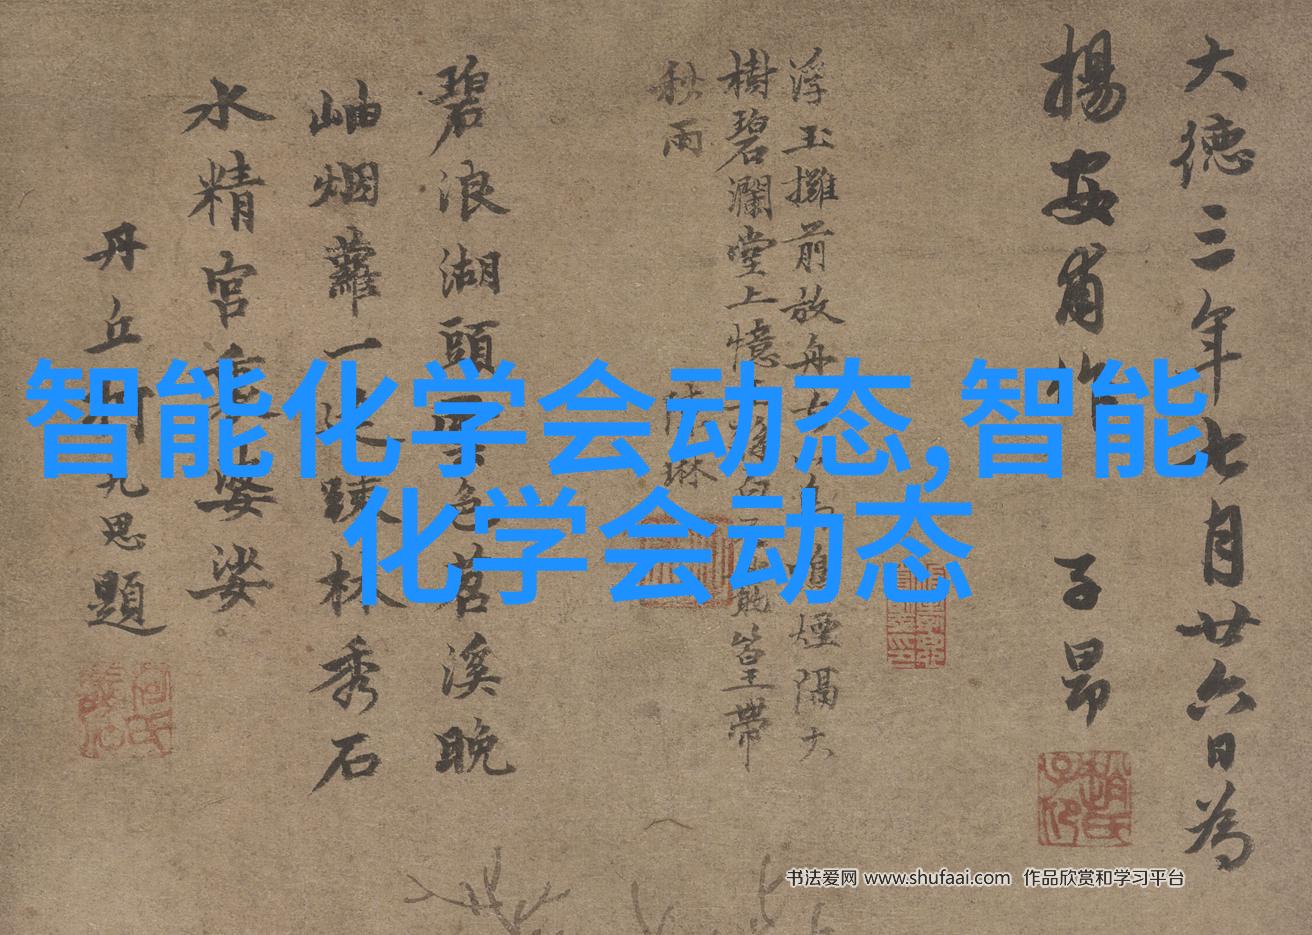 大德三年七月廿六日為
揚安甫作 子昂
浮玉攤前放舟 煙隔大
樹碧瀾堂上憶 篁帶
秋雨
碧浪湖頭 色苕溪晚
岫烟蘿一 疎林秀石
水精宮 婆娑
丹丘柯九思題
智能化学会动态,智能
化学会动态
书法爱网 www.shufaai.com 作品欣赏和学习平台